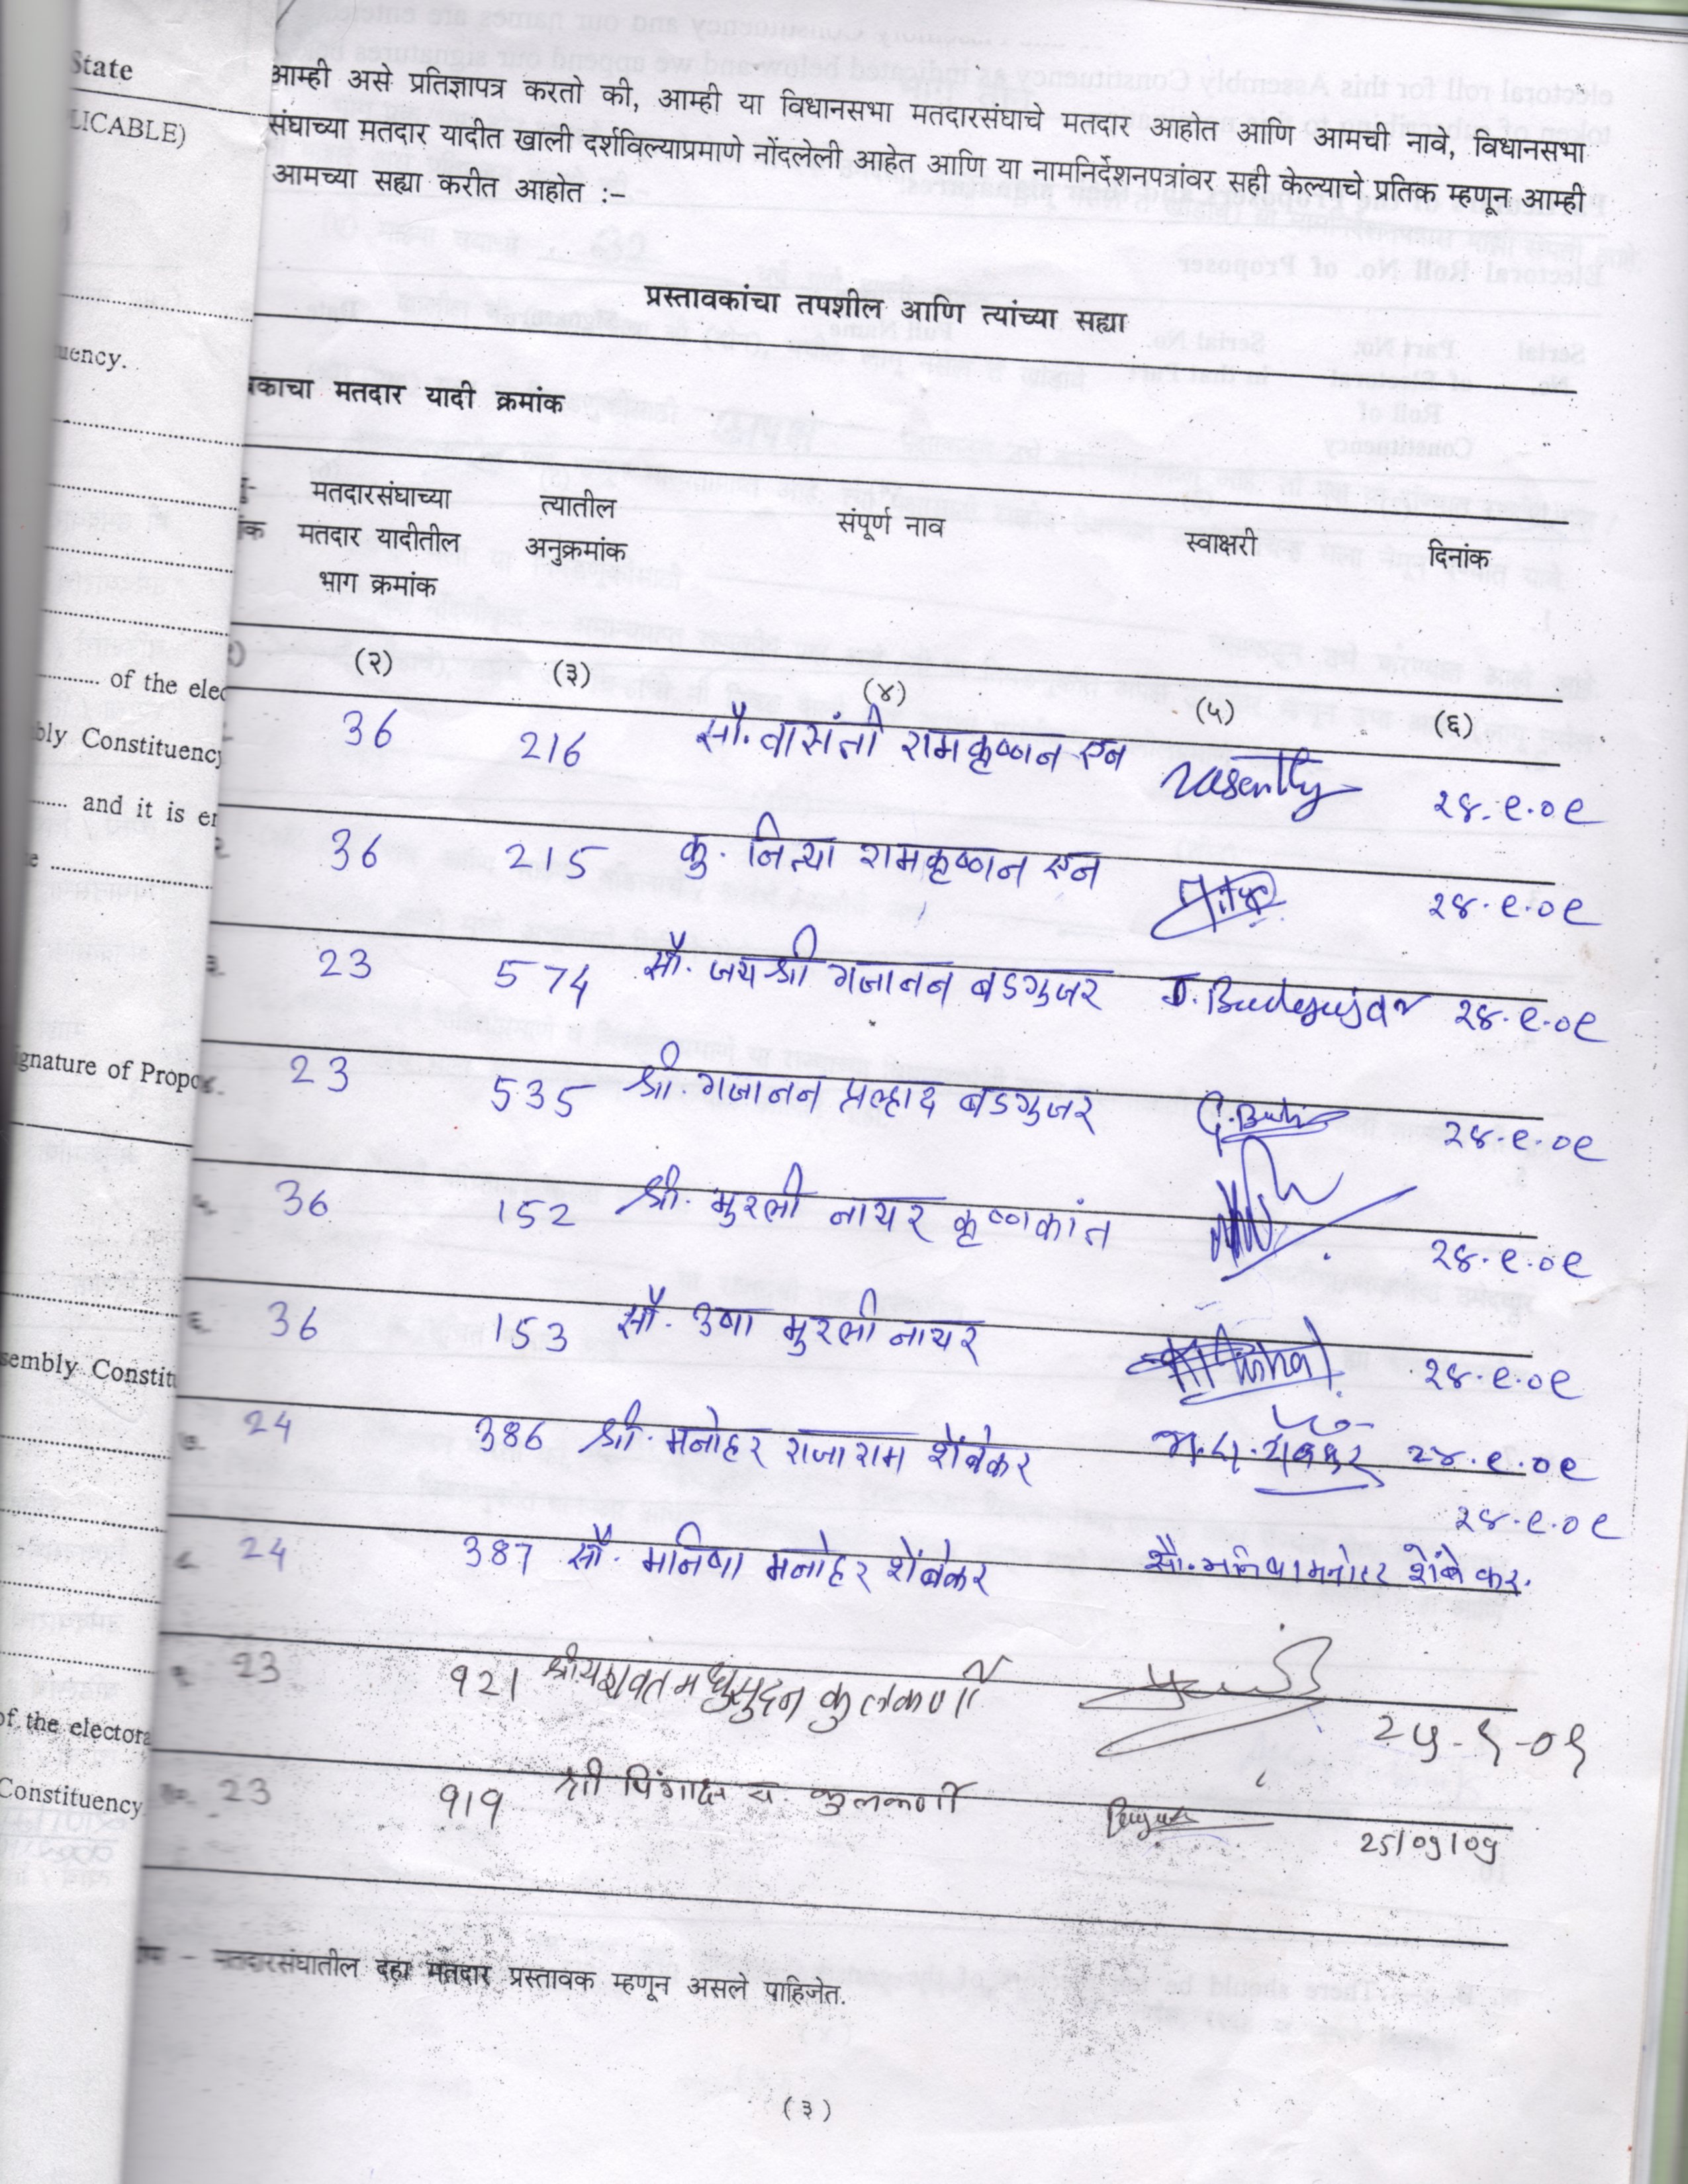 State
LICABLE)
आम्ही असे प्रतिज्ञापत्र करतो की, आम्ही या विधानसभा मतदारसंघाचे मतदार आहोत आणि आमची नावे, विधानसभा
संघाच्या मतदार यादीत खाली दर्शविल्याप्रमाणे नोंदलेली आहेत आणि या नामनिर्देशनपत्रांवर सही केल्याचे प्रतिक म्हणून आम्ही
आमच्या सह्या करीत आहोत :–
प्रस्तावकांचा तपशील आणि त्यांच्या सह्या
uency.
वकाचा मतदार यादी क्रमांक
मतदारसंघाच्या त्यातील संपूर्ण नाव स्वाक्षरी दिनांक
मतदार यादीतील अनुक्रमांक
भाग क्रमांक
(२) (३) (४) (५) (६)
of the elec
36 216 सौ. वासंती रामकृष्णन एन Vasanthy २४.९.०९
bly Constituency
and it is en
२. 36 215 कु. नित्या रामकृष्णन एन २४.९.०९
३. 23 574 सौ. जयश्री गजानन बडगुजर J. Budgujar २४.९.०९
ignature of Propo
४. 23 535 श्री. गजानन प्रल्हाद बडगुजर २४.९.०९
५. 36 152 श्री. मुरली नायर कृष्णकांत २४.९.०९
६. 36 153 सौ. उषा मुरली नायर २४.९.०९
sembly Constitu
७. 24 386 श्री. मनोहर राजाराम शेंबेकर २४.९.०९
२४.९.०९
८. 24 387 सौ. मनिषा मनोहर शेंबेकर सौ. मनिषा मनोहर शेंबेकर.
९. 23 921 श्री यशवंत मधुसुदन कुलकर्णी २५-९-०९
of the electora
Constituency
१०. 23 919 श्री पिंगाक्ष य. कुलकर्णी 25/09/09
टीप – मतदारसंघातील दहा मतदार प्रस्तावक म्हणून असले पाहिजेत.
(३)